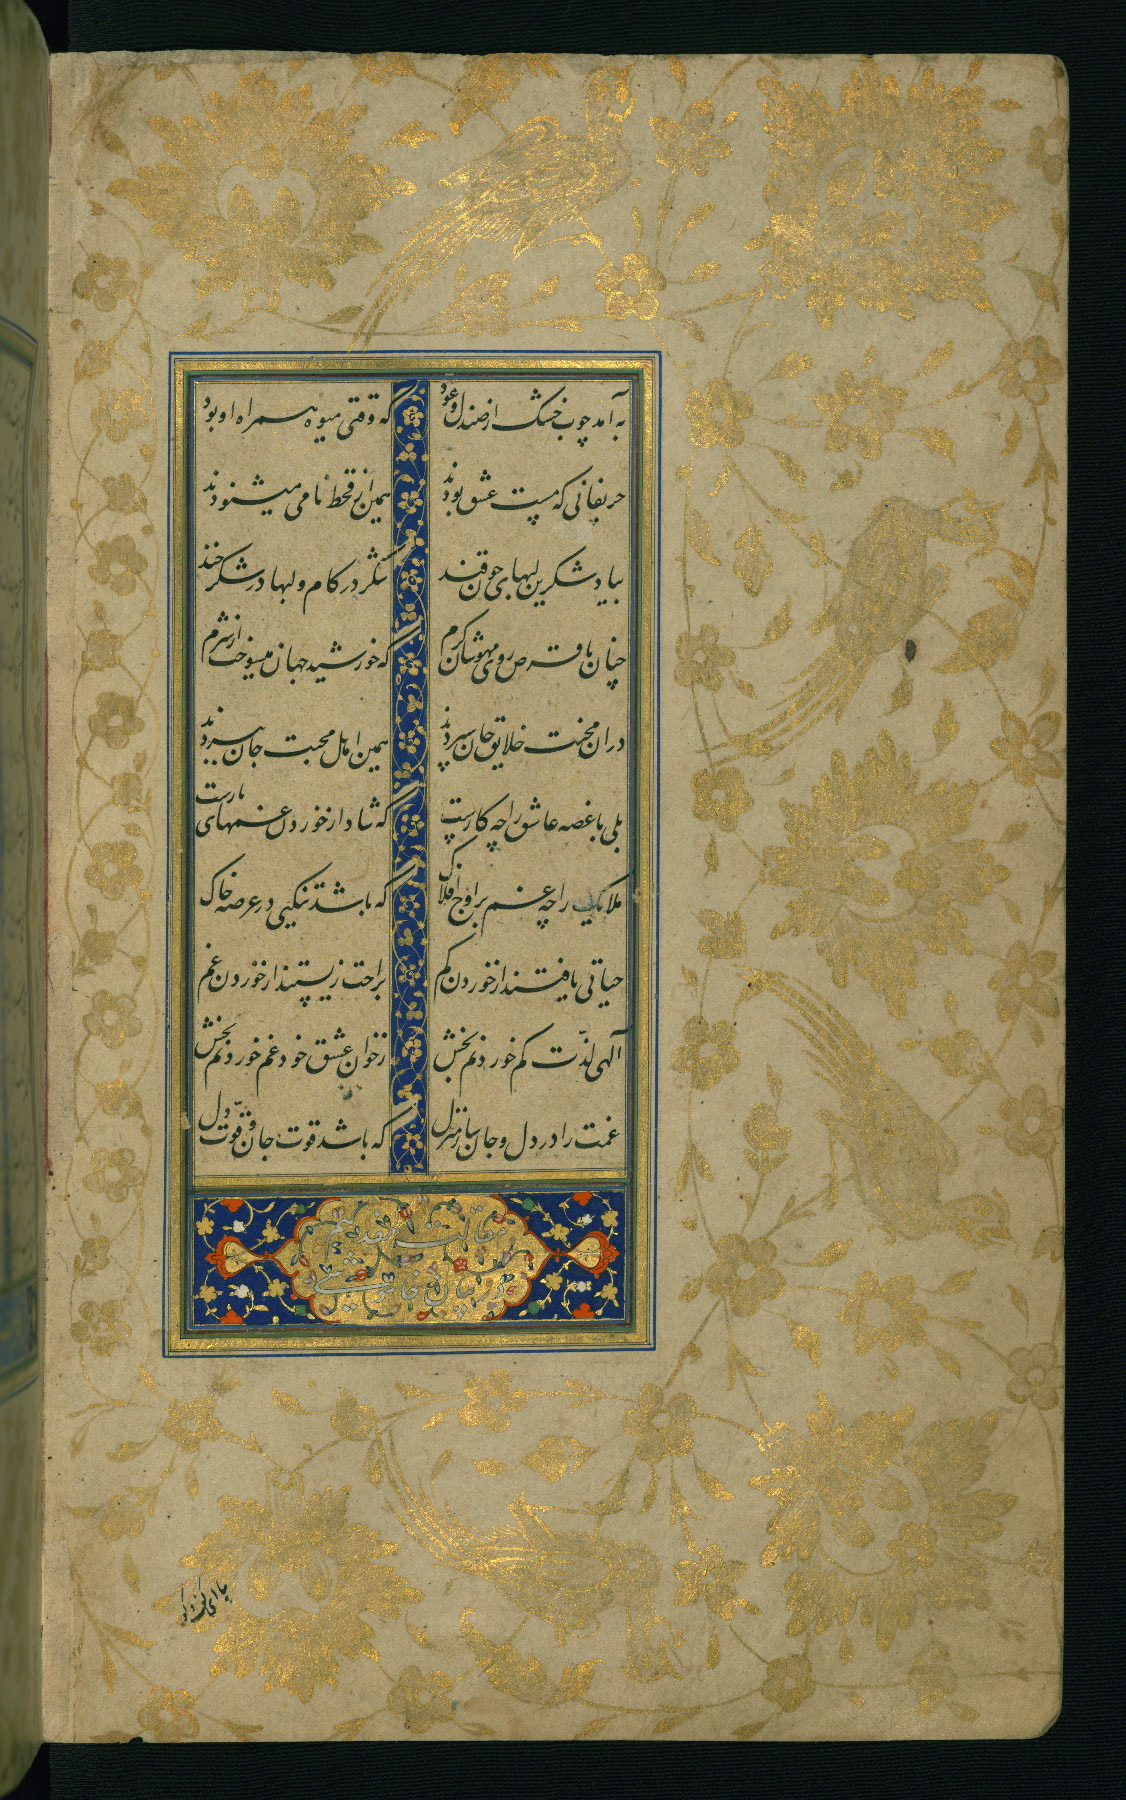 به آمد چوب خشک از صندل و عود که وقتی میوه همراه او بود
حریفانی که مست عشق بودند همین از قحط نامی میشنودند
بیاد شکرین لبهای چون قند شکر در کام و لبها در شکرخند
چنان با قرص روی مهوشان گرم که خورشید جهان میسوخت از شرم
دران محنت خلایق جان سپردند همین اهل محبت جان ببردند
بلی با غصه عاشق را چه کارست که شاد از خوردن غمهای یارست
ملایک را چه غم بر اوج افلاک که باشد تنگیی در عرصه خاک
حیاتی یافتند از خوردن کم براحت زیستند از خوردن غم
الهی لذت کم خوردنم بخش ز خوان عشق خود غم خوردنم بخش
غمت را در دل و جان ساز منزل که باشد قوت جان و قوت دل
مقالت هفدهم
در بیان خاموشی